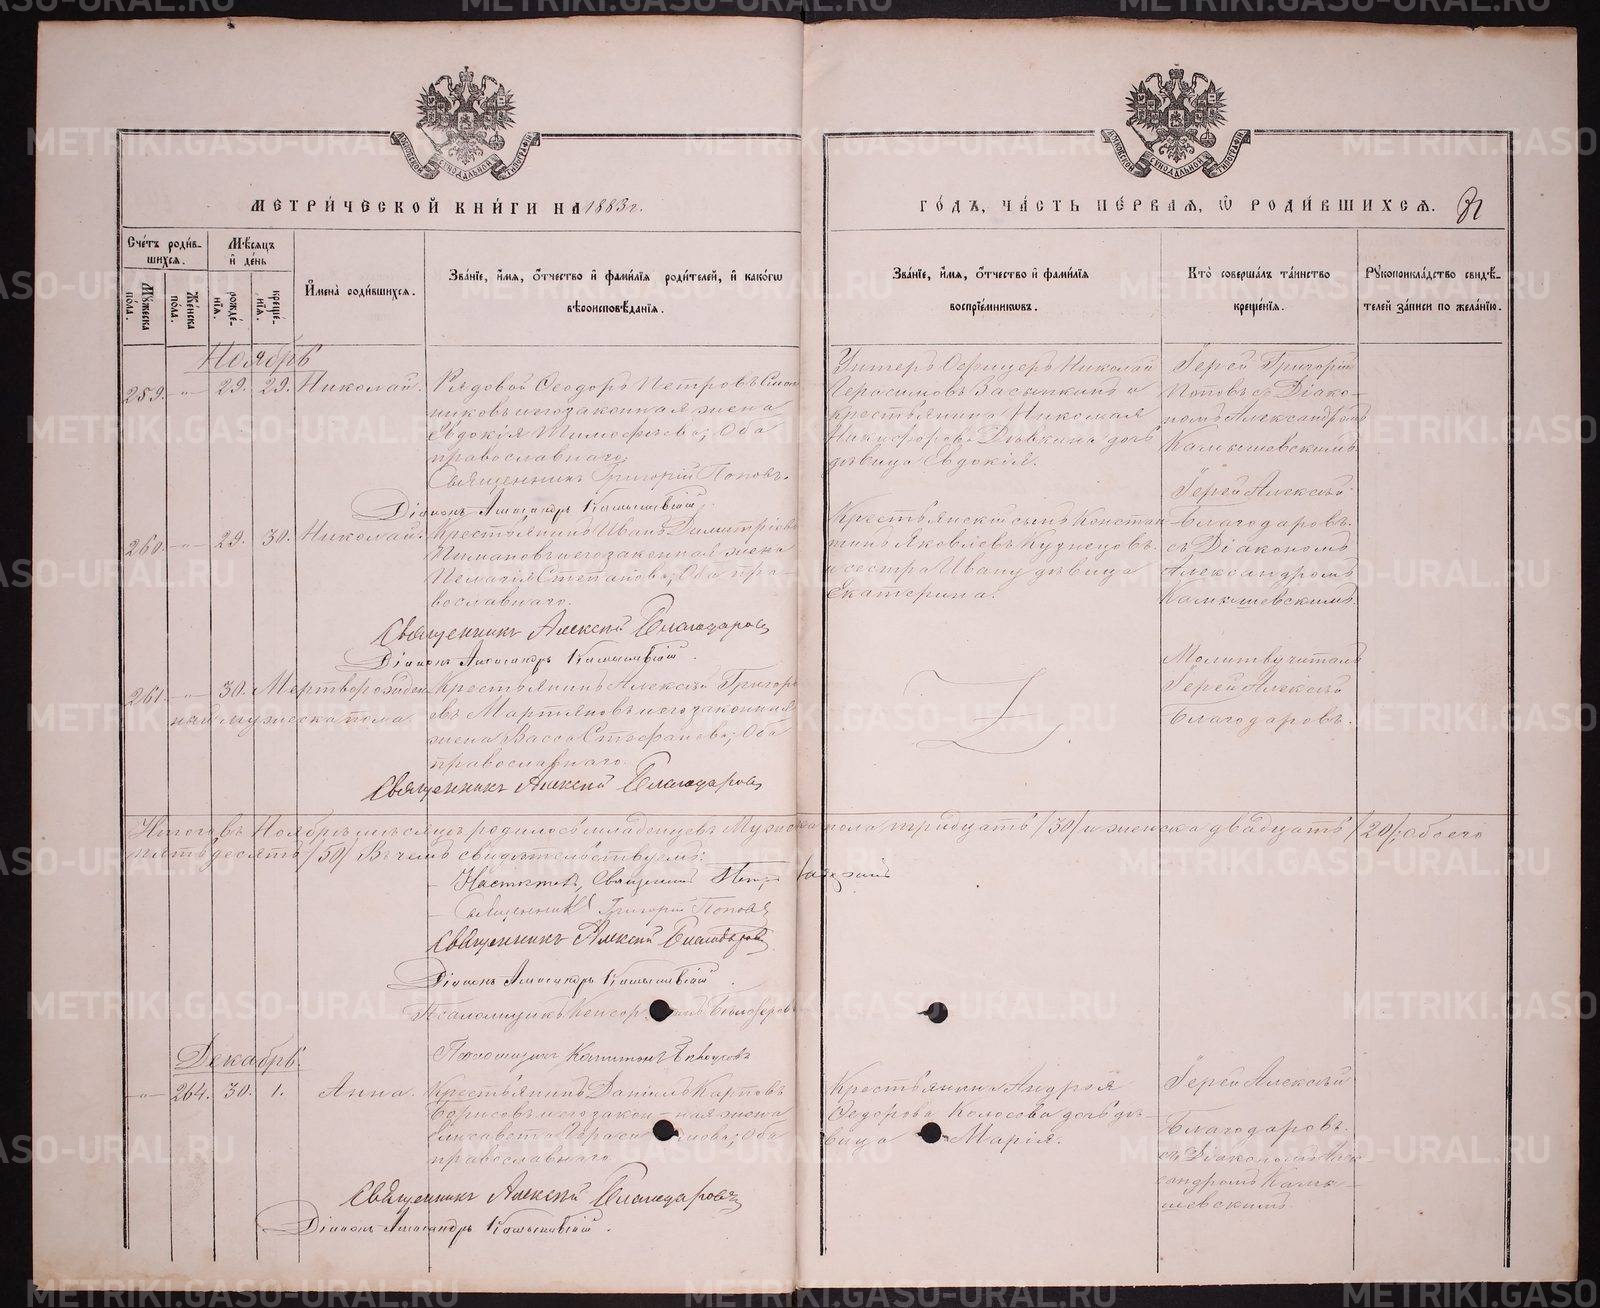 МЕТРИ́ЧЕСКОЙ КНИ́ГИ НА 1883 г.
ГО́ДЪ, ЧА́СТЬ ПЕ́РВАЯ, Ѡ҆ РОДИ́ВШИХСЯ.
МОСКОВСКОЙ СѴНОДАЛЬНОЙ ТИПОГРАФІИ
МОСКОВСКОЙ СѴНОДАЛЬНОЙ ТИПОГРАФІИ
Сче́тъ роди́в-
шихся.
Мѣ́сяцъ
и҆ де́нь
Му́жеска
по́ла.
Же́нска
по́ла.
рожде́-
нїя.
креще́-
нїя.
И҆мена̀ роди́вшихся.
Зва́нїе, и҆́мя, ѻ҆́тчество и҆ фами́лїя роди́телей, и҆ како́гѡ
вѣроисповѣ́данїя.
Зва́нїе, и҆́мя, ѻ҆́тчество и҆ фами́лїя
воспрїе́мниковъ.
Кто̀ соверша́лъ та́инство
креще́нїя.
Рꙋкоприкла́дство свидѣ́-
телей за́писи по жела́нїю.
Ноябрь
259. -"- 29. 29. Николай.
Рядовой Ѳеодоръ Петровъ
никовъ и его законная жена
Евдокія Тимофѣева; Оба
православнаго.
Священникъ Григорій Поповъ.
Діаконъ Александръ Камышевскій
Унтеръ Офицеръ Николай
Герасимовъ Засыпкинъ и
крестьянина Николая
Никифорова Дѣвкина дочь
дѣвица Евдокія.
Іерей Григорій
Поповъ съ Діако-
номъ Александромъ
Камышевскимъ.
260. -"- 29. 30. Николай.
Крестьянинъ Иванъ Димитріевъ
Пимановъ и его законная жена
Пелагія Степанова; Оба пра-
вославнаго.
Священникъ Алексій Благодаровъ
Діаконъ Александръ Камышевскій.
Крестьянскій сынъ Констан
тинъ Яковлевъ Кузнецовъ.
и сестра Ивану дѣвица
Екатерина.
Іерей Алексѣй
Благодаровъ.
съ Діакономъ
Александромъ
Камышевскимъ.
261. -"- 30. Мертворожден
ный мужеска пола.
Крестьянинъ Алексѣй Григорь
евъ Мартяновъ и его законная
жена Васса Стефанова; Оба
православнаго.
Священникъ Алексій Благодаровъ
Молитву читалъ
Іерей Алексѣй
Благодаровъ.
Итого въ Ноябрѣ мѣсяцѣ родилось младенцевъ Мужеска пола тридцать /30/ и женска двадцать /20/; обоего
пятьдесятъ /50/ Въ чемъ свидѣтельствуемъ:
Настоятель, Священникъ Петръ
Священникъ Григорій Поповъ
Священникъ Алексій Благодаровъ
Діаконъ Александръ Камышевскій.
Псаломщикъ
Псаломщикъ Капитонъ
Декабрь.
-"- 264. 30. 1. Анна.
Крестьянинъ Даніилъ Карповъ
Борисовъ и его законная жена
Елисавета Герасимова; Оба
православнаго.
Священникъ Алексій Благодаровъ
Діаконъ Александръ Камышевскій.
Крестьянина Андрея
Ѳедорова Колосова дочь дѣ-
вица Марія.
Іерей Алексѣй
Благодаровъ.
съ Діакономъ Алек
сандромъ Камы-
шевскимъ.
METRIKI.GASO-URAL.RU